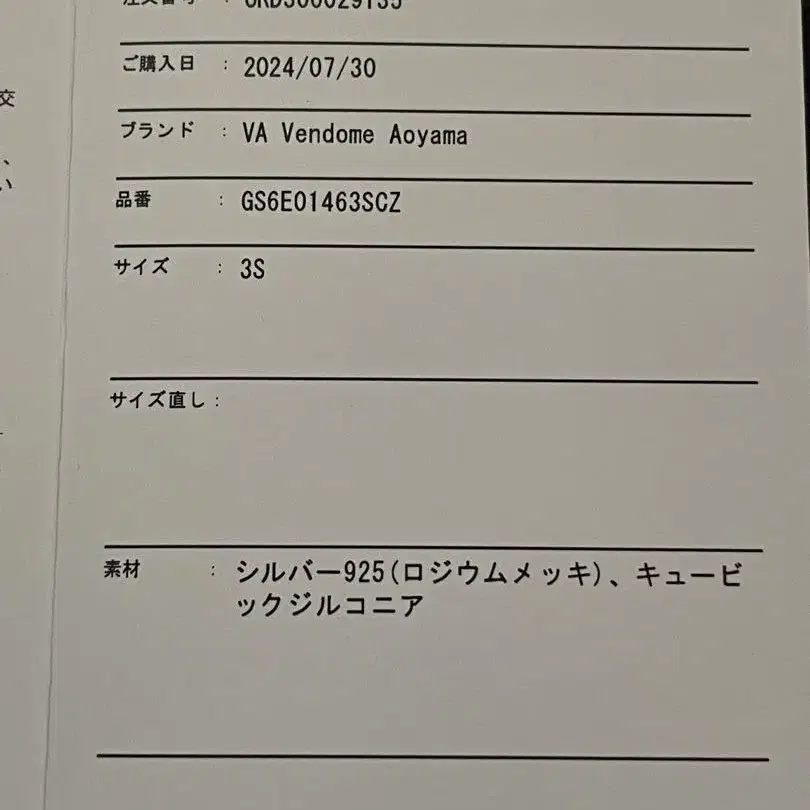 ご購入日 : 2024/07/30
交
ブランド : VA Vendome Aoyama
、
い
品番 : GS6E01463SCZ
サイズ : 3S
サイズ直し :
素材 : シルバー925(ロジウムメッキ)、キュービ
ックジルコニア